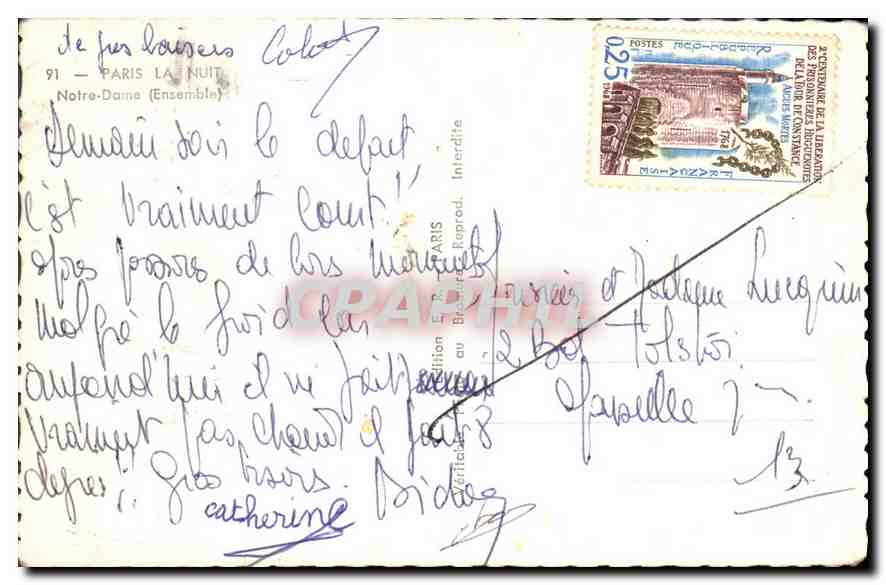 de gros baisers
91 — PARIS LA NUIT
Notre-Dame (Ensemble)
Demain soir le depart
c'est vraiment court!!
apres passons de bons moments
malgré le froid car
aujourd'hui il ne fait
vraiment pas chaud il fait 8
degrés. Gros baisers.
catherine
Véritable au Bromure Reprod. Interdite
Edition E. R. PARIS
CPAPHIL
POSTES
REPUBLIQUE
FRANCAISE
0,25
1968
1768
2e CENTENAIRE DE LA LIBERATION
DES PRISONNIERES HUGUENOTES
DE LA TOUR DE CONSTANCE
AIGUES-MORTES
Monsieur et Madame Lucquin
2 Bd Tolstoi
Marseille
13